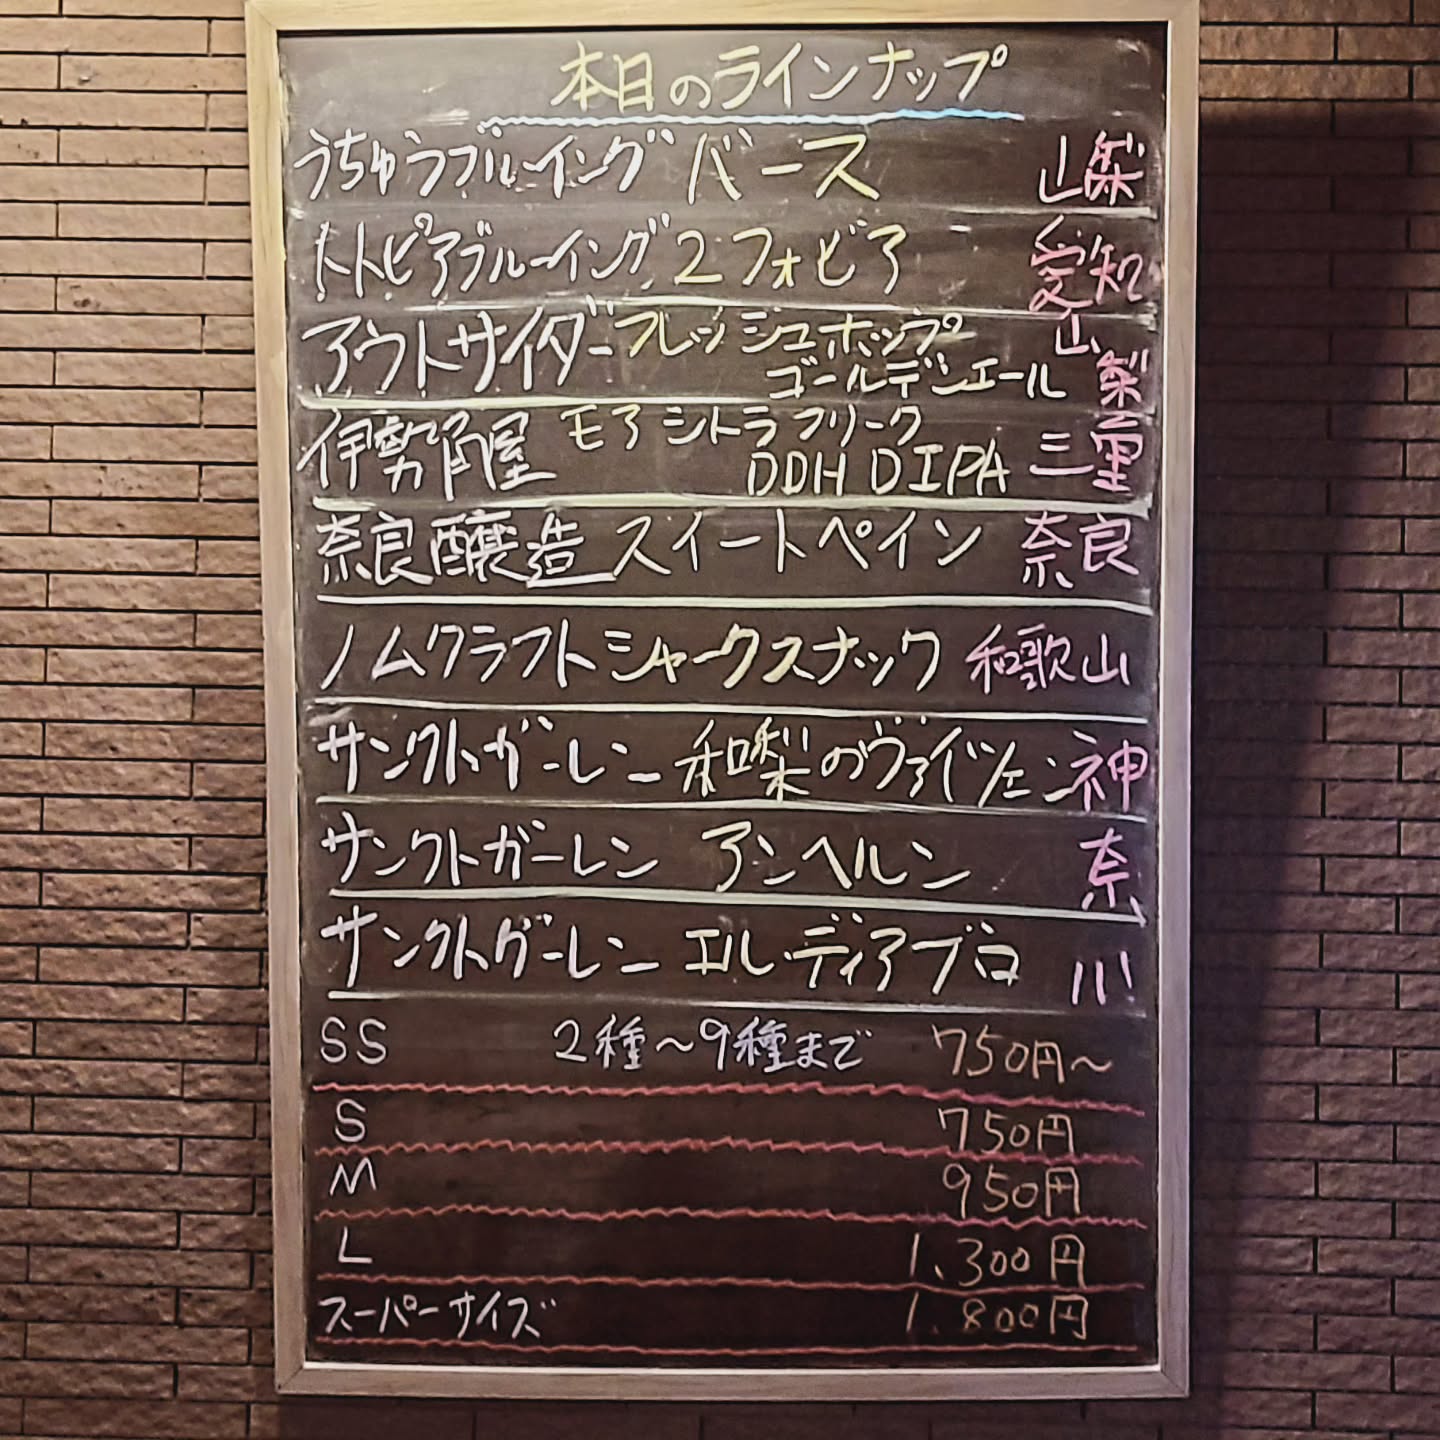 本日のラインナップ
うちゅうブルーイング バース 山梨
トトピアブルーイング 2フォビア 愛知
アウトサイダー フレッシュホップ 山梨
ゴールデンエール
伊勢角屋 モア シトラ フリーク 三重
DDH DIPA
奈良醸造 スイートペイン 奈良
ノムクラフト シャークスナック 和歌山
サンクトガーレン 和梨のヴァイツェン 神
サンクトガーレン アンヘルン 奈
サンクトガーレン エル・ディアブロ 川
SS 2種～9種まで 750円～
S 750円
M 950円
L 1.300円
スーパーサイズ 1.800円